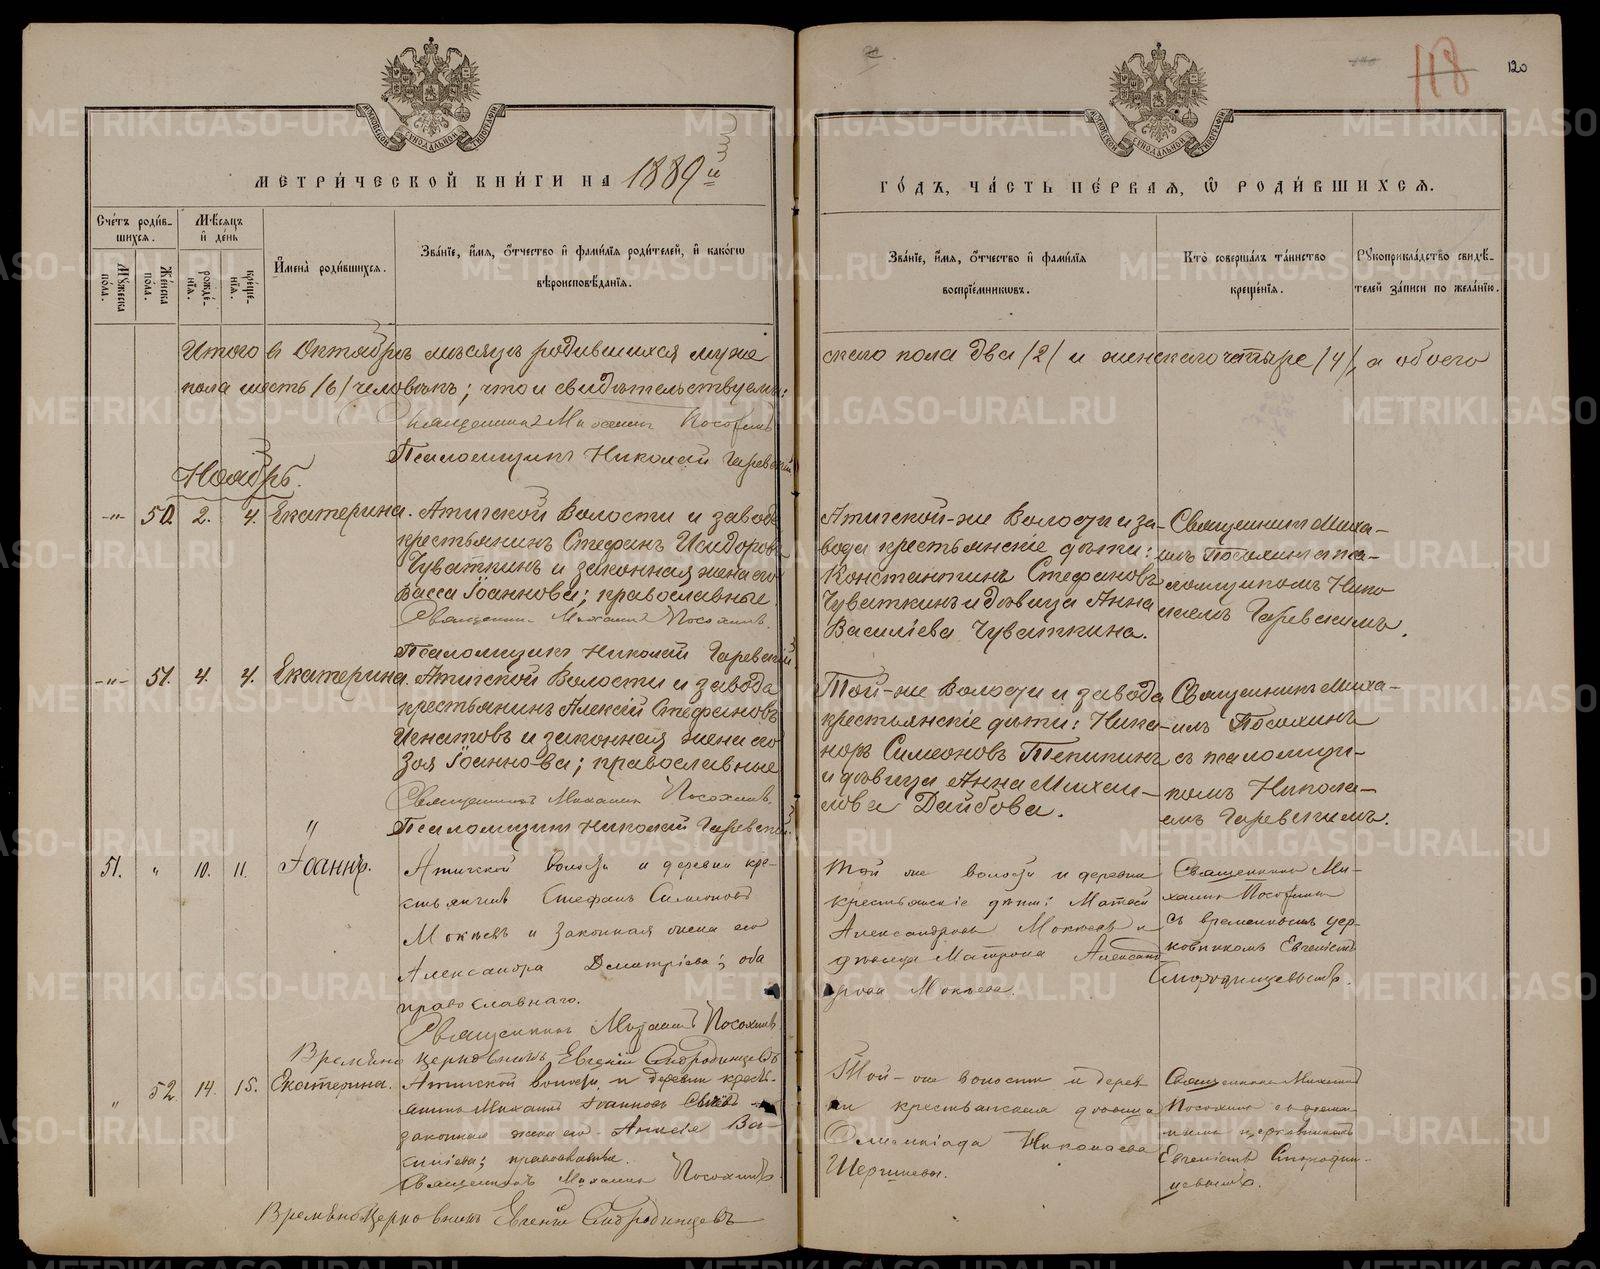 118
120
МОСКОВСКОЙ СѴНОДАЛЬНОЙ ТИПОГРАФІИ
МОСКОВСКОЙ СѴНОДАЛЬНОЙ ТИПОГРАФІИ
МЕТРИ́ЧЕСКОЙ КНИ́ГИ НА 1889й
ГО́ДЪ, ЧА́СТЬ ПЕ́РВАЯ, Ѿ РОДИ́ВШИХСЯ.
Сче́тъ роди́в-
шихся.
Мѣ́сяцъ
и҆ де́нь
Му́жеска
по́ла.
Же́нска
по́ла.
рожде́-
нїя.
креще́-
нїя.
И҆мена̀ роди́вшихся.
Зва́нїе, и҆́мя, ѻ҆́тчество и҆ фами́лїя роди́телей, и҆ како́гѡ
вѣроисповѣ́данїя.
Зва́нїе, и҆́мя, ѻ҆́тчество и҆ фами́лїя
воспрїе́мникѡвъ.
Кто̀ соверша́лъ та́инство
креще́нїя.
Рукоприкла́дство свидѣ́-
телей за́писи по жела́нїю.
Итого въ Октябрѣ мѣсяцѣ родившихся муже
скаго пола два /2/ и женскаго четыре /4/, а обоего
пола шесть /6/ человѣкъ; что и свидѣтельствуемъ:
Священникъ Михаилъ Посохинъ
Псаломщикъ Николай Гаревскій
Ноябрь.
-"- 50. 2. 4. Екатерина.
Атигской Волости и завода
крестьянинъ Стефанъ Исидоровъ
Чуваткинъ и законная жена его
Васса Іоаннова; православные.
Священникъ Михаилъ Посохинъ.
Псаломщикъ Николай Гаревскій.
Атигской-же Волости и за-
вода крестьянскіе дѣти:
Константинъ Стефановъ
Чуваткинъ и дѣвица Анна
Василіева Чуваткина.
Священникъ Миха-
илъ Посохинъ съ пса-
ломщикомъ Нико
лаемъ Гаревскимъ.
-"- 51. 4. 4. Екатерина.
Атигской Волости и завода
крестьянинъ Алексій Стефановъ
Игнатовъ и законная жена его
Зоя Іоаннова; православные
Священникъ Михаилъ Посохинъ.
Псаломщикъ Николай Гаревскій.
Той-же Волости и завода
крестьянскіе дѣти: Ника-
норъ Симеоновъ Тепикинъ
и дѣвица Анна Михаи-
лова Даибова.
Священникъ Миха-
илъ Посохинъ
съ псаломщи-
комъ Никола-
емъ Гаревскимъ.
51. " 10. 11. Іоаннъ.
Атигской волости и деревни кре-
стьянинъ Стефанъ Симеоновъ
Мокѣевъ и законная жена его
Александра Димитріева; оба
православнаго.
Священникъ Михаилъ Посохинъ
Времяно церковникъ Евгеній Смородинцевъ
Той же волости и деревни
крестьянскіе дѣти: Матвѣй
Александровъ Мокѣевъ и
дѣвица Матрона Александ
рова Мокѣева.
Священникъ Ми-
хаилъ Посохинъ
съ временнымъ цер-
ковникомъ Евгеніемъ
Смородинцевымъ.
" 52 14. 15. Екатерина.
Атигской волости и деревни кресть-
янинъ Михаилъ Іоанновъ
законная жена его Ва-
силіева; православные.
Священникъ Михаилъ Посохинъ
Времяно церковникъ Евгеній Смородинцевъ
Той-же волости и дерев
ни крестьянская дѣвица
Олимпіада Николаева
Священникъ Михаилъ
Посохинъ съ времен
нымъ церковникомъ
Евгеніемъ Смородин-
цевымъ.
METRIKI.GASO-URAL.RU